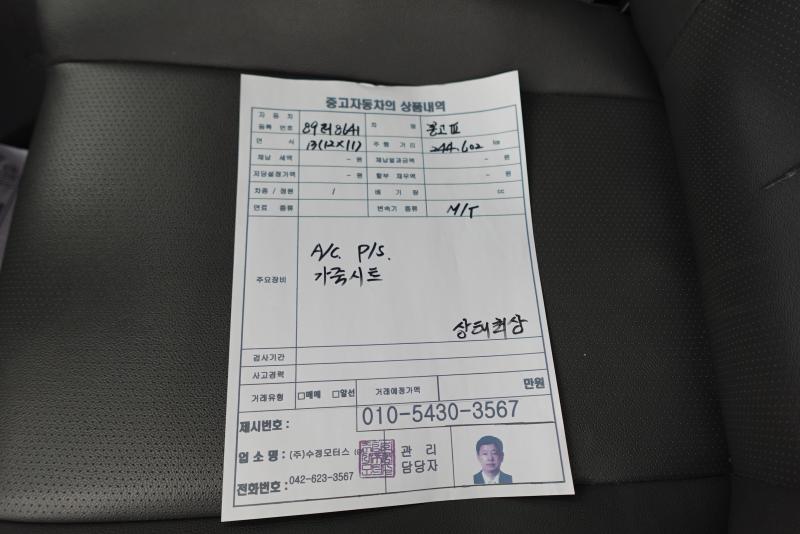 중고자동차의 상품내역
자동차 등록 번호 89러8641 차 명 봉고Ⅲ
연 식 13(12×11) 주행 거리 244.602 km
체납 세액 - 원 체납벌과금액 - 원
저당설정가액 - 원 할부 채무액 - 원
차종 / 정원 / 배 기 량 cc
연료 종류 변속기 종류 M/T
주요장비
A/C. P/S.
가죽시트
상태최상
검사기간
사고경력
거래유형 □매매 □알선 거래예정가액 만원
제시번호 : 010-5430-3567
업 소 명 : (주)수정모터스
관 리 담당자
전화번호 : 042-623-3567